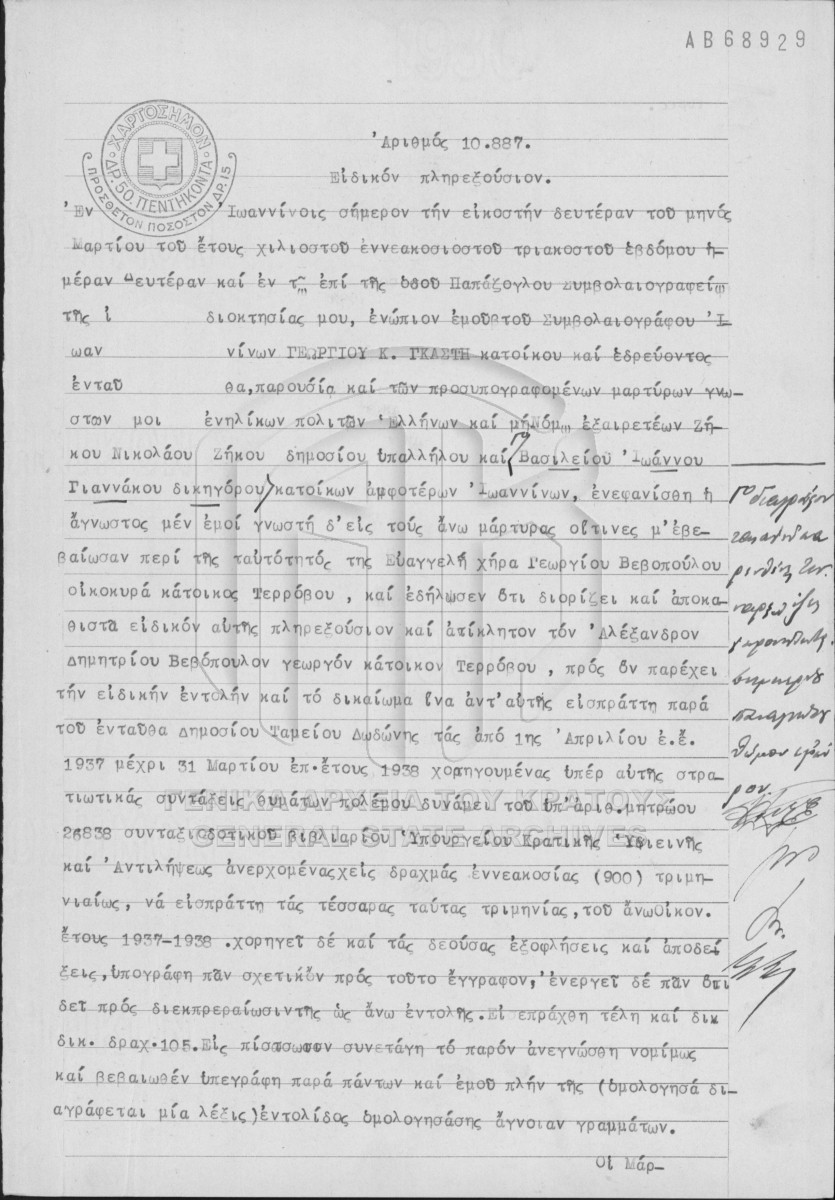 ΑΒ68929
ΧΑΡΤΟΣΗΜΟΝ
ΔΡ.50.ΠΕΝΤΗΚΟΝΤΑ
ΠΡΟΣΘΕΤΟΝ ΠΟΣΟΣΤΟΝ ΔΡ.15
Ἀριθμός 10.887.
Εἰδικόν πληρεξούσιον.
Ἐν Ἰωαννίνοις σήμερον τήν εἰκοστήν δευτέραν τοῦ μηνός
Μαρτίου τοῦ ἔτους χιλιοστοῦ ἐννεακοσιοστοῦ τριακοστοῦ ἑβδόμου ἡ-
μέραν Δευτέραν καί ἐν τῷ ἐπί τῆς ὁδοῦ Παπάζογλου Συμβολαιογραφείῳ
τῆς ἰ διοκτησίας μου, ἐνώπιον ἐμοῦ τοῦ Συμβολαιογράφου Ἰ-
ωαν νίνων ΓΕΩΡΓΙΟΥ Κ. ΓΚΑΣΤΗ κατοίκου καί ἑδρεύοντος
ἐνταῦ θα,παρουσίᾳ καί τῶν προσυπογραφομένων μαρτύρων γνω-
στῶν μοι ἐνηλίκων πολιτῶν Ἑλλήνων καί μή Νόμῳ ἐξαιρετέων Ζή-
κου Νικολάου Ζήκου δημοσίου ὑπαλλήλου καί Βασιλείου Ἰωάννου
Γιαννάκου δικηγόρου κατοίκων ἀμφοτέρων Ἰωαννίνων, ἐνεφανίσθη ἡ
ἄγνωστος μέν ἐμοί γνωστή δ'εἰς τούς ἄνω μάρτυρας οἵτινες μ'ἐβε-
βαίωσαν περί τῆς ταὐτότητός της Εὐαγγελή χήρα Γεωργίου Βεβοπούλου
οἰκοκυρά κάτοικος Τερρόβου , καί ἐδήλωσεν ὅτι διορίζει καί ἀποκα-
θιστᾶ εἰδικόν αὐτῆς πληρεξούσιον καί ἀτίκλητον τόν Ἀλέξανδρον
Δημητρίου Βεβόπουλον γεωργόν κάτοικον Τερρόβου , πρός ὅν παρέχει
τήν εἰδικήν ἐντολήν καί τό δικαίωμα ἵνα ἀντ'αὐτῆς εἰσπράττη παρά
τοῦ ἐνταῦθα Δημοσίου Ταμείου Δωδώνης τάς ἀπό 1ης Ἀπριλίου ἐ.ἔ.
1937 μέχρι 31 Μαρτίου ἐπ.ἔτους 1938 χορηγουμένας ὑπέρ αὐτῆς στρα-
τιωτικάς συντάξεις θυμάτων πολέμου δυνάμει τοῦ ὑπ'ἀριθ.μητρώου
26838 συνταξιοδοτικοῦ βιβλιαρίου Ὑπουργείου Κρατικῆς Ὑγιεινῆς
καί Ἀντιλήψεως ἀνερχομέναςχεἰς δραχμάς ἐννεακοσίας (900) τριμη-
νιαίως, νά εἰσπράττη τάς τέσσαρας ταύτας τριμηνίας,τοῦ ἄνωΟἰκον.
ἔτους 1937-1938 .χορηγεῖ δέ καί τάς δεούσας ἐξοφλήσεις καί ἀποδεί
ξεις,ὑπογράφη πᾶν σχετικόν πρός τοῦτο ἔγγραφον,ἐνεργεῖ δέ πᾶν ὅτι
δεῖ πρός διεκπρεραίωσιντῆς ὡς ἄνω ἐντολῆς.Εἰσεπράχθη τέλη καί δικ
δικ. δραχ.105.Εἰς πίστωσιν συνετάγη τό παρόν ἀνεγνώσθη νομίμως
καί βεβαιωθέν ὑπεγράφη παρά πάντων καί ἐμοῦ πλήν τῆς (ὁμολογησά δι-
αγράφεται μία λέξις)ἐντολίδος ὁμολογησάσης ἄγνοιαν γραμμάτων.
Οἱ Μάρ-
ΓΕΝΙΚΑ ΑΡΧΕΙΑ ΤΟΥ ΚΡΑΤΟΥΣ
GENERAL STATE ARCHIVES